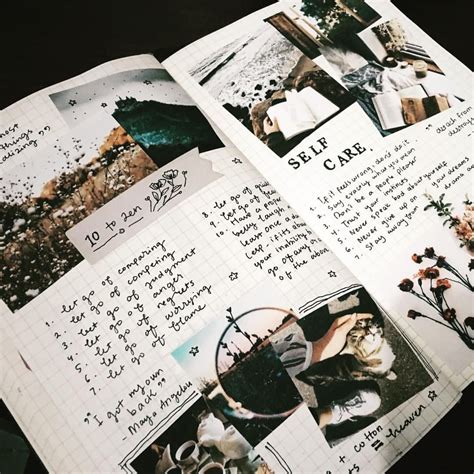 things
10 to zen
1. let go of comparing
2. let go of competing
3. let go of judgment
4. let go of anger
5. let go of regrets
6. let go of worrying
7. let go of blame
8. let go of
9. let go of
belly laugh
leap if it's
your inability
let go of any
of the above
" I got my own
back "
- Maya Angelou
SELF
CARE
1. If it feels wrong, don't do it
2. Say exactly what you mean
3. Don't be a people pleaser
4. Trust your instincts
5. Never speak bad about yourself
6. Never give up on your dreams
7. Stay away from
+ cotton
= heaven